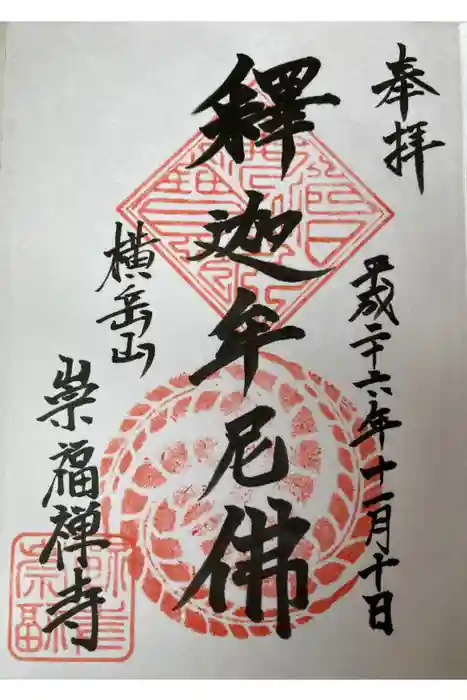 奉拝
歳二十六年十一月十日
釋迦牟尼佛
横岳山
崇福禅寺